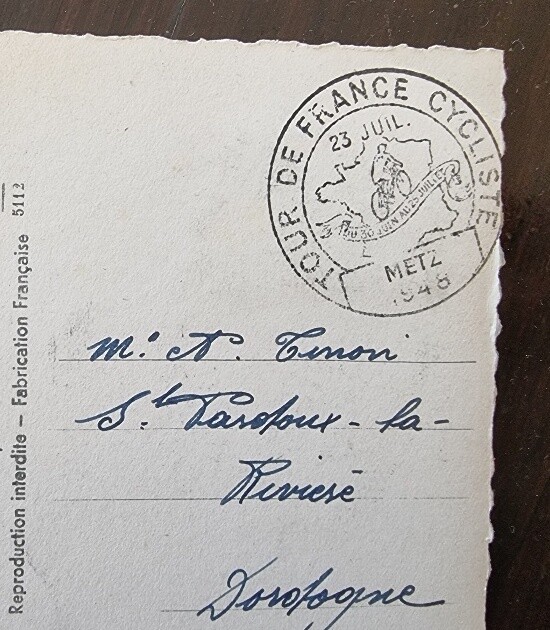 TOUR DE FRANCE CYCLISTE
23 JUIL.
DU 30 JUIN AU 25 JUILLET
METZ
1948
Mr A. Tenon
St Pardoux-la-
Rivière
Dordogne
Reproduction interdite — Fabrication Française 5112